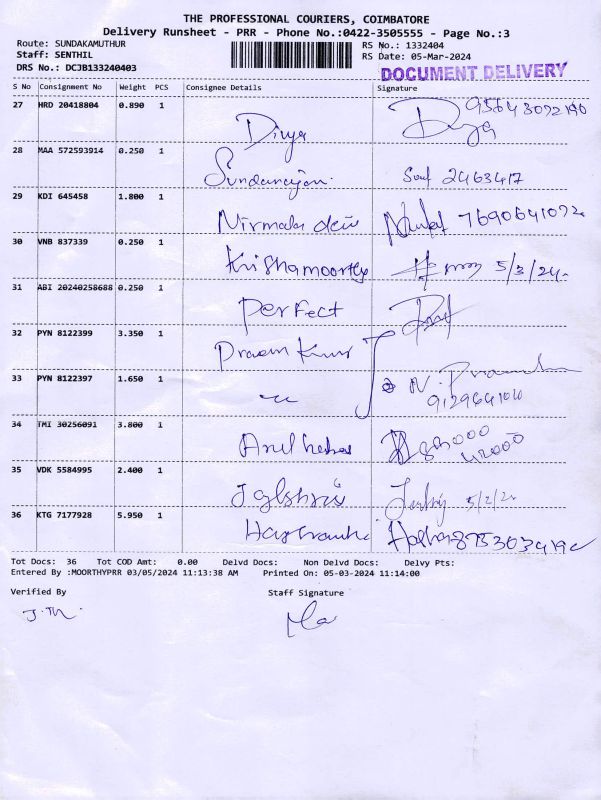 THE PROFESSIONAL COURIERS, COIMBATORE
Delivery Runsheet - PRR - Phone No.:0422-3505555 - Page No.:3
Route: SUNDAKAMUTHUR
Staff: SENTHIL
DRS No.: DCJB133240403
RS No.: 1332404
RS Date: 05-Mar-2024
DOCUMENT DELIVERY
S No Consignment No Weight PCS Consignee Details Signature
27 HRD 20418804 0.890 1 Divya
28 MAA 572593914 0.250 1 Sundararajan. 2463417
29 KDI 645458 1.800 1 Nirmala devi 7690641092
30 VNB 837339 0.250 1 Krishamoorthy 5/3/24
31 ABI 20240258688 0.250 1 perfect
32 PYN 8122399 3.350 1
33 PYN 8122397 1.650 1 N.
34 TMI 30256091 3.800 1
35 VDK 5584995 2.400 1
36 KTG 7177928 5.950 1
Tot Docs: 36 Tot COD Amt: 0.00 Delvd Docs: Non Delvd Docs: Delvy Pts:
Entered By :MOORTHYPRR 03/05/2024 11:13:38 AM Printed On: 05-03-2024 11:14:00
Verified By Staff Signature